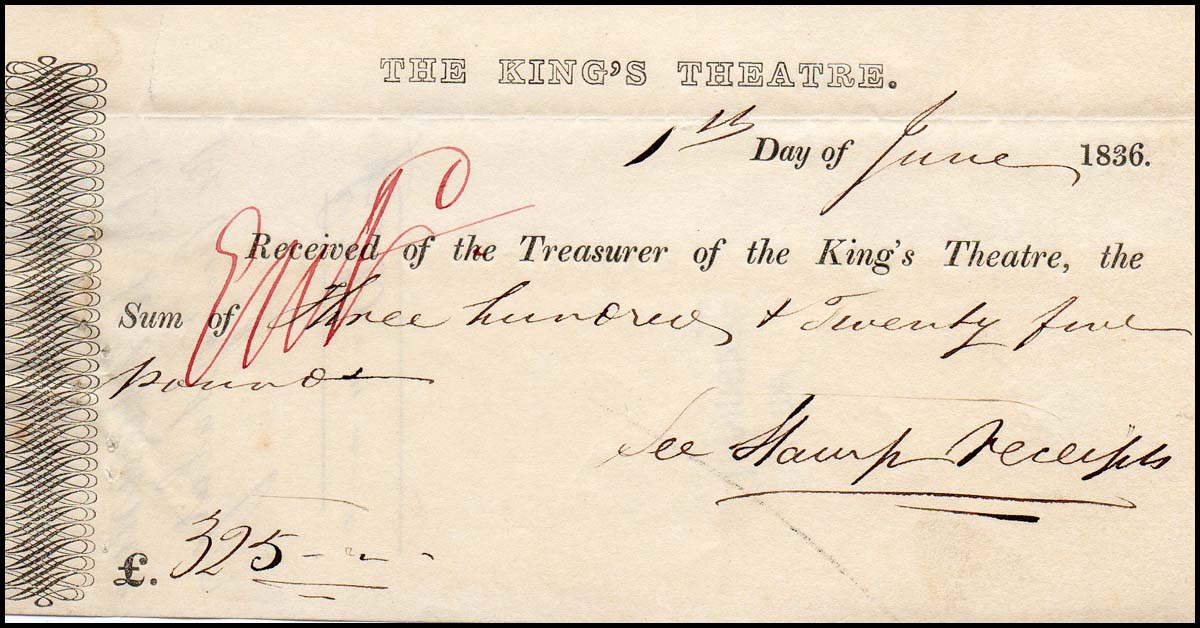 THE KING'S THEATRE.
1th Day of June 1836.
Received of the Treasurer of the King's Theatre, the
Sum of Three hundred & Twenty five
pounds
See Stamp receipts
£. 325 - " -